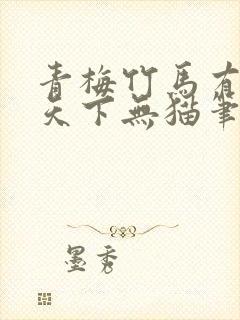 青梅竹馬有
天下無貓筆
墨秀